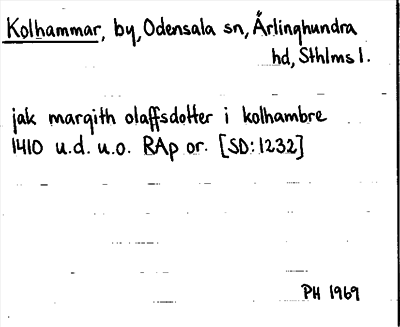 Kolhammar, by, Odensala sn, Ärlinghundra
hd, Sthlms l.
jak margith olaffsdotter i kolhambre
1410 u.d. u.o. RAp or. [SD:1232]
PH 1969